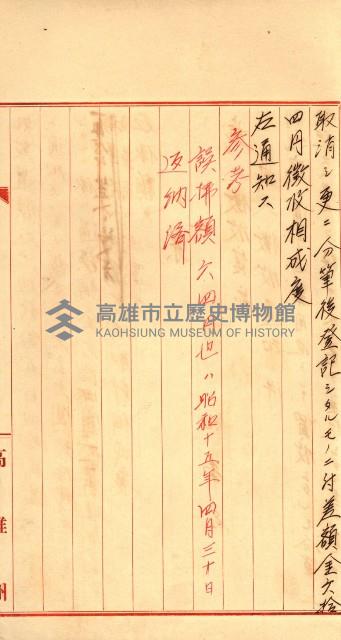 取消シ更ニ分筆後登記シタルモノニ付差額金六拾
四円徴收相成度
右通知ス
参考
誤拂額六四円也ハ昭和十五年四月三十日
返納済
高雄州
高雄市立歷史博物館
KAOHSIUNG MUSEUM OF HISTORY